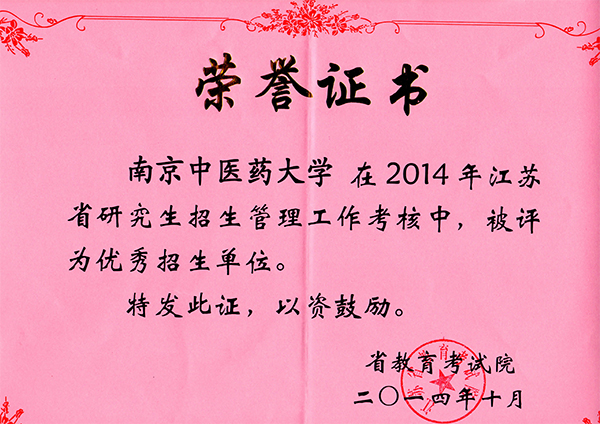 荣誉证书
南京中医药大学 在2014年江苏
省研究生招生管理工作考核中，被评
为优秀招生单位。
特发此证，以资鼓励。
省教育考试院
二〇一四年十月